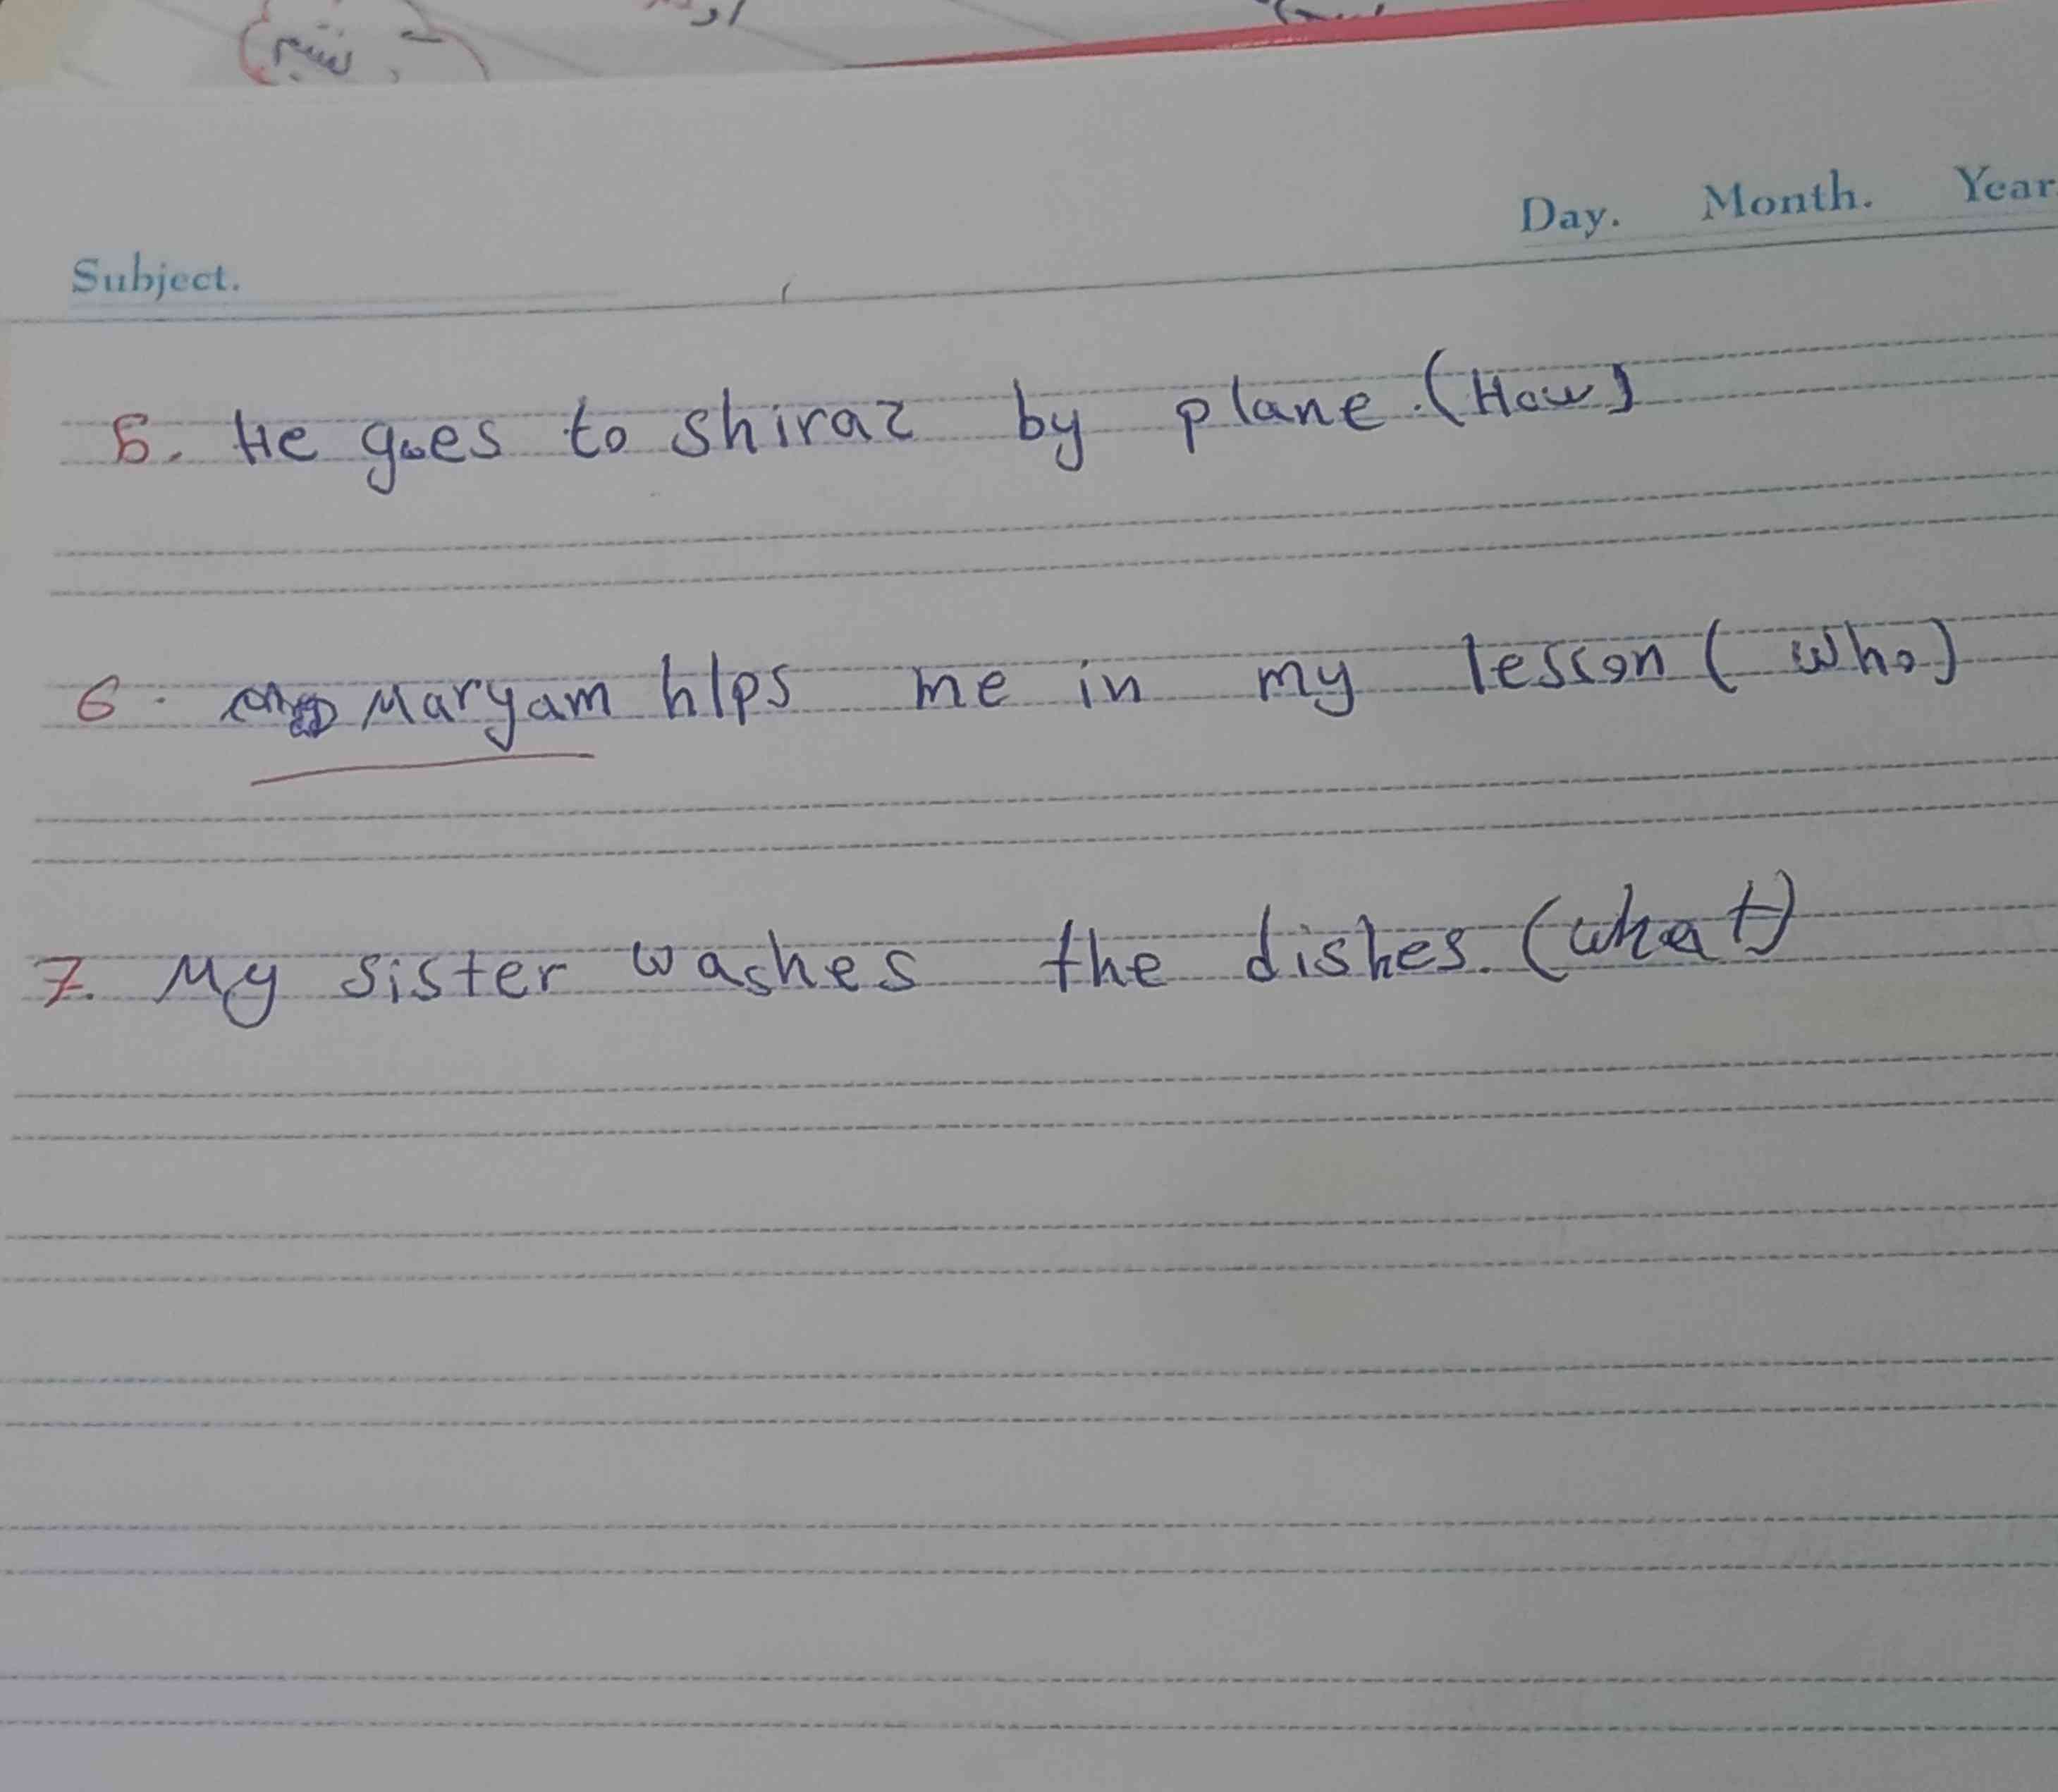 Day. Month. Year
Subject.
5. He goes to shiraz by plane. (How)
6. Maryam hlps me in my lesson ( who)
7. My sister washes the dishes. (what)